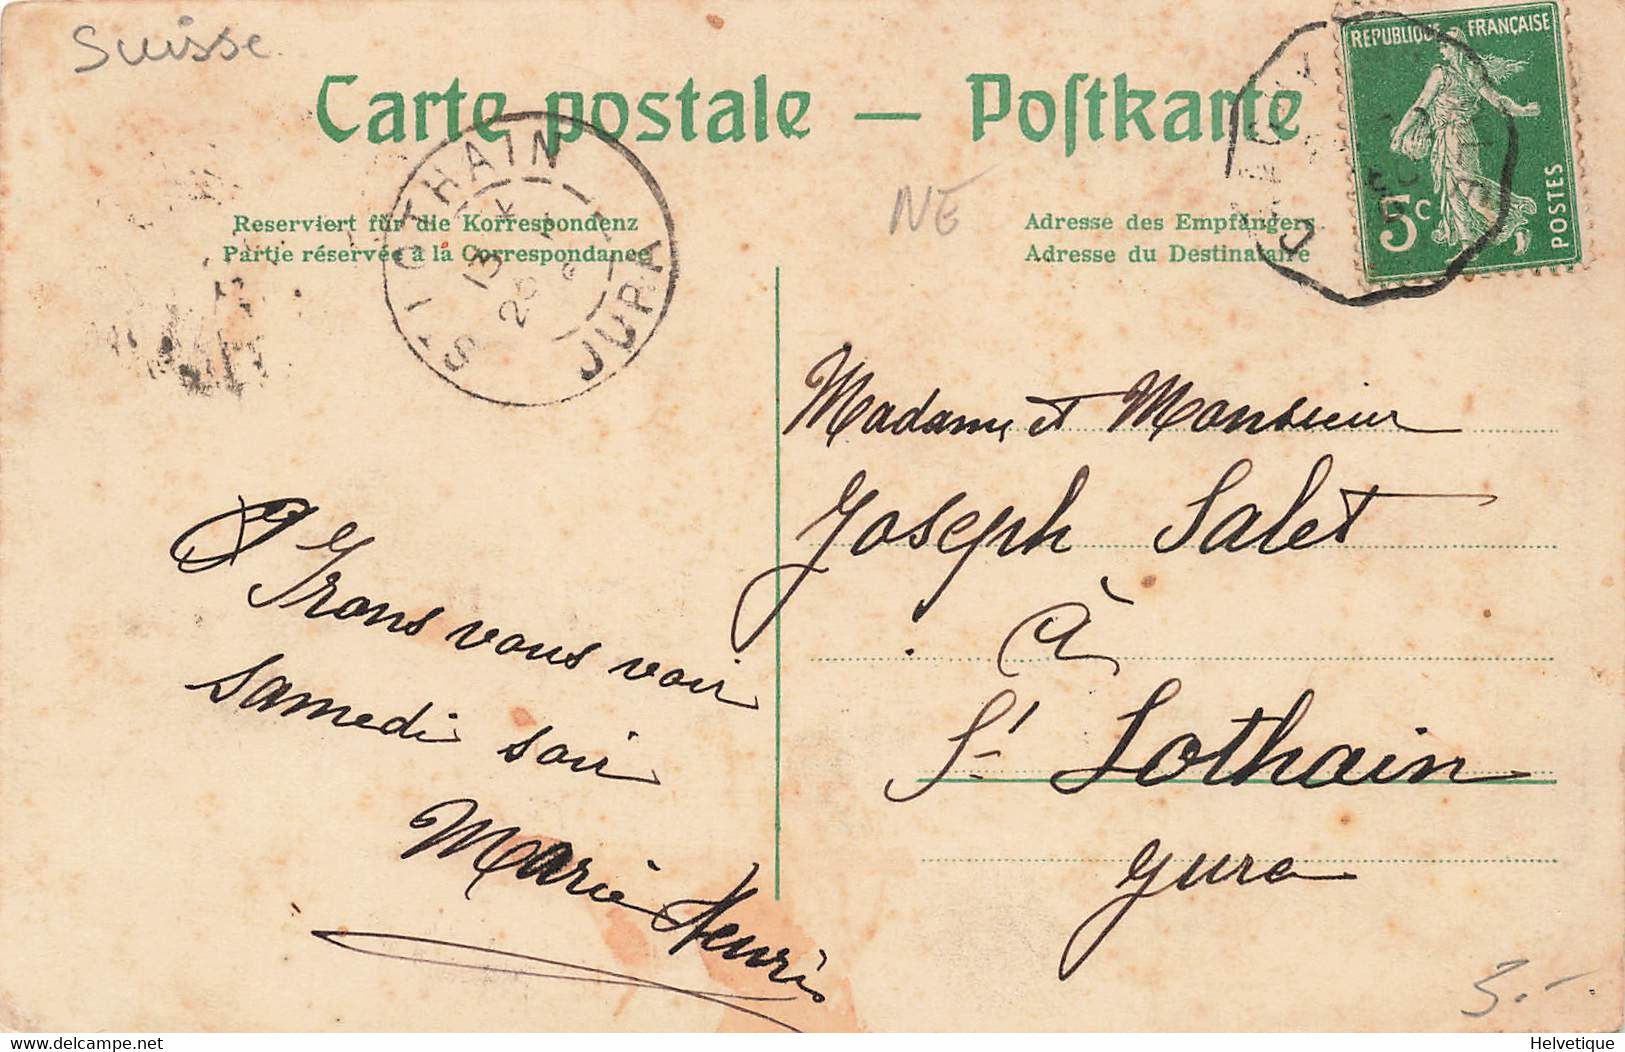 Suisse
Carte postale — Postkarte
REPUBLIQUE FRANÇAISE
5c
POSTES
ST LOTHAIN
JURA
13
28
NE
Reserviert für die Korrespondenz
Partie réservée à la Correspondance
Adresse des Empfängers
Adresse du Destinataire
Madame et Monsieur
Joseph Salet
à
St Lothain
Jura
Irons vous voir
samedi soir
Marie Henri
3.-
www.delcampe.net
Helvetique